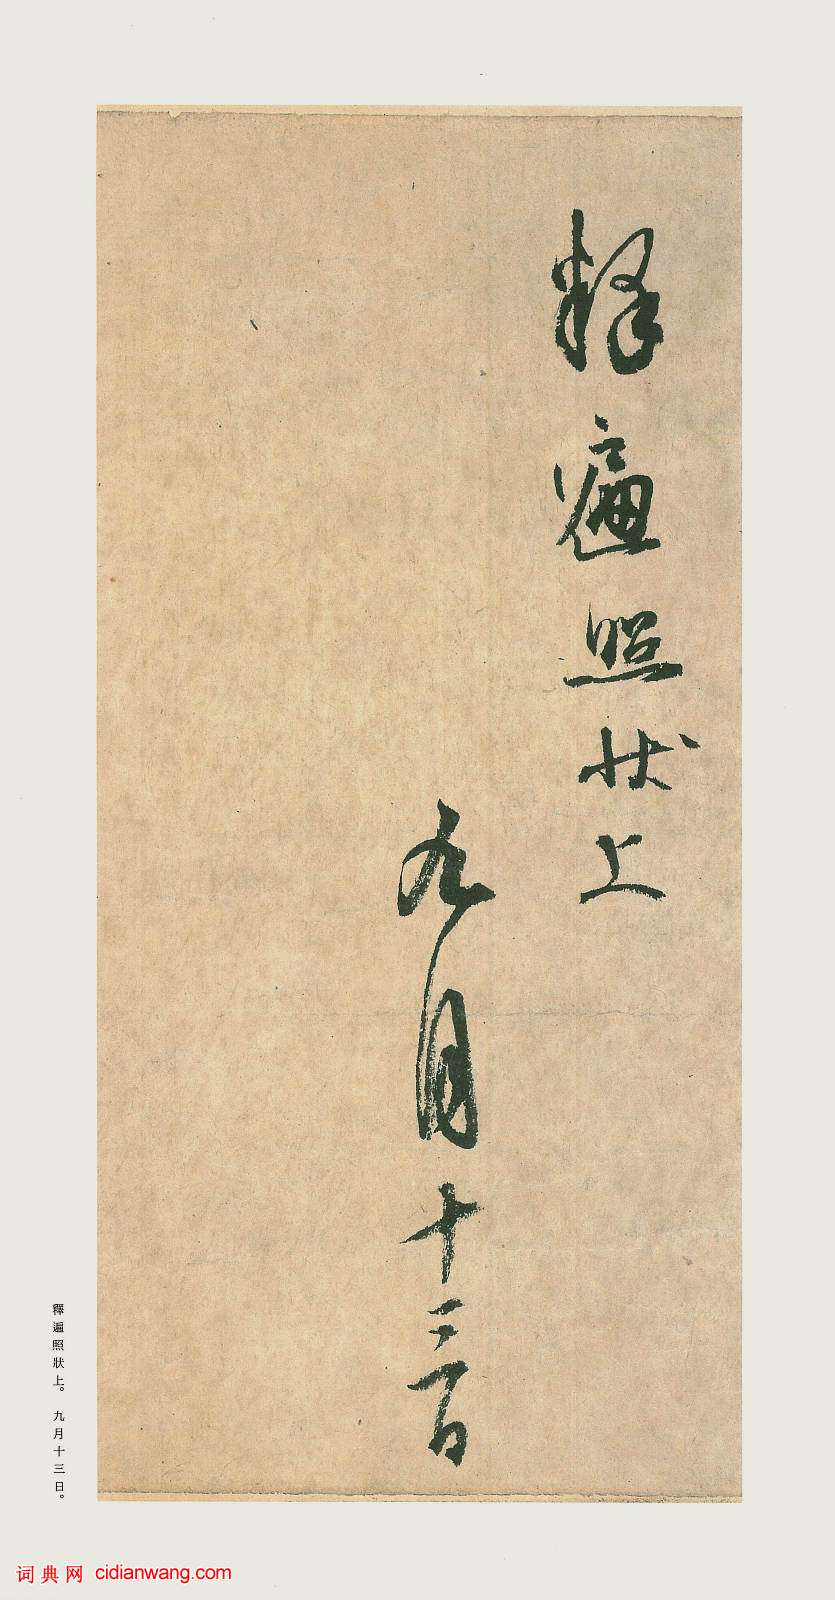 釋遍照狀上
九月十三日
釋遍照狀上。九月十三日。
词典网 cidianwang.com